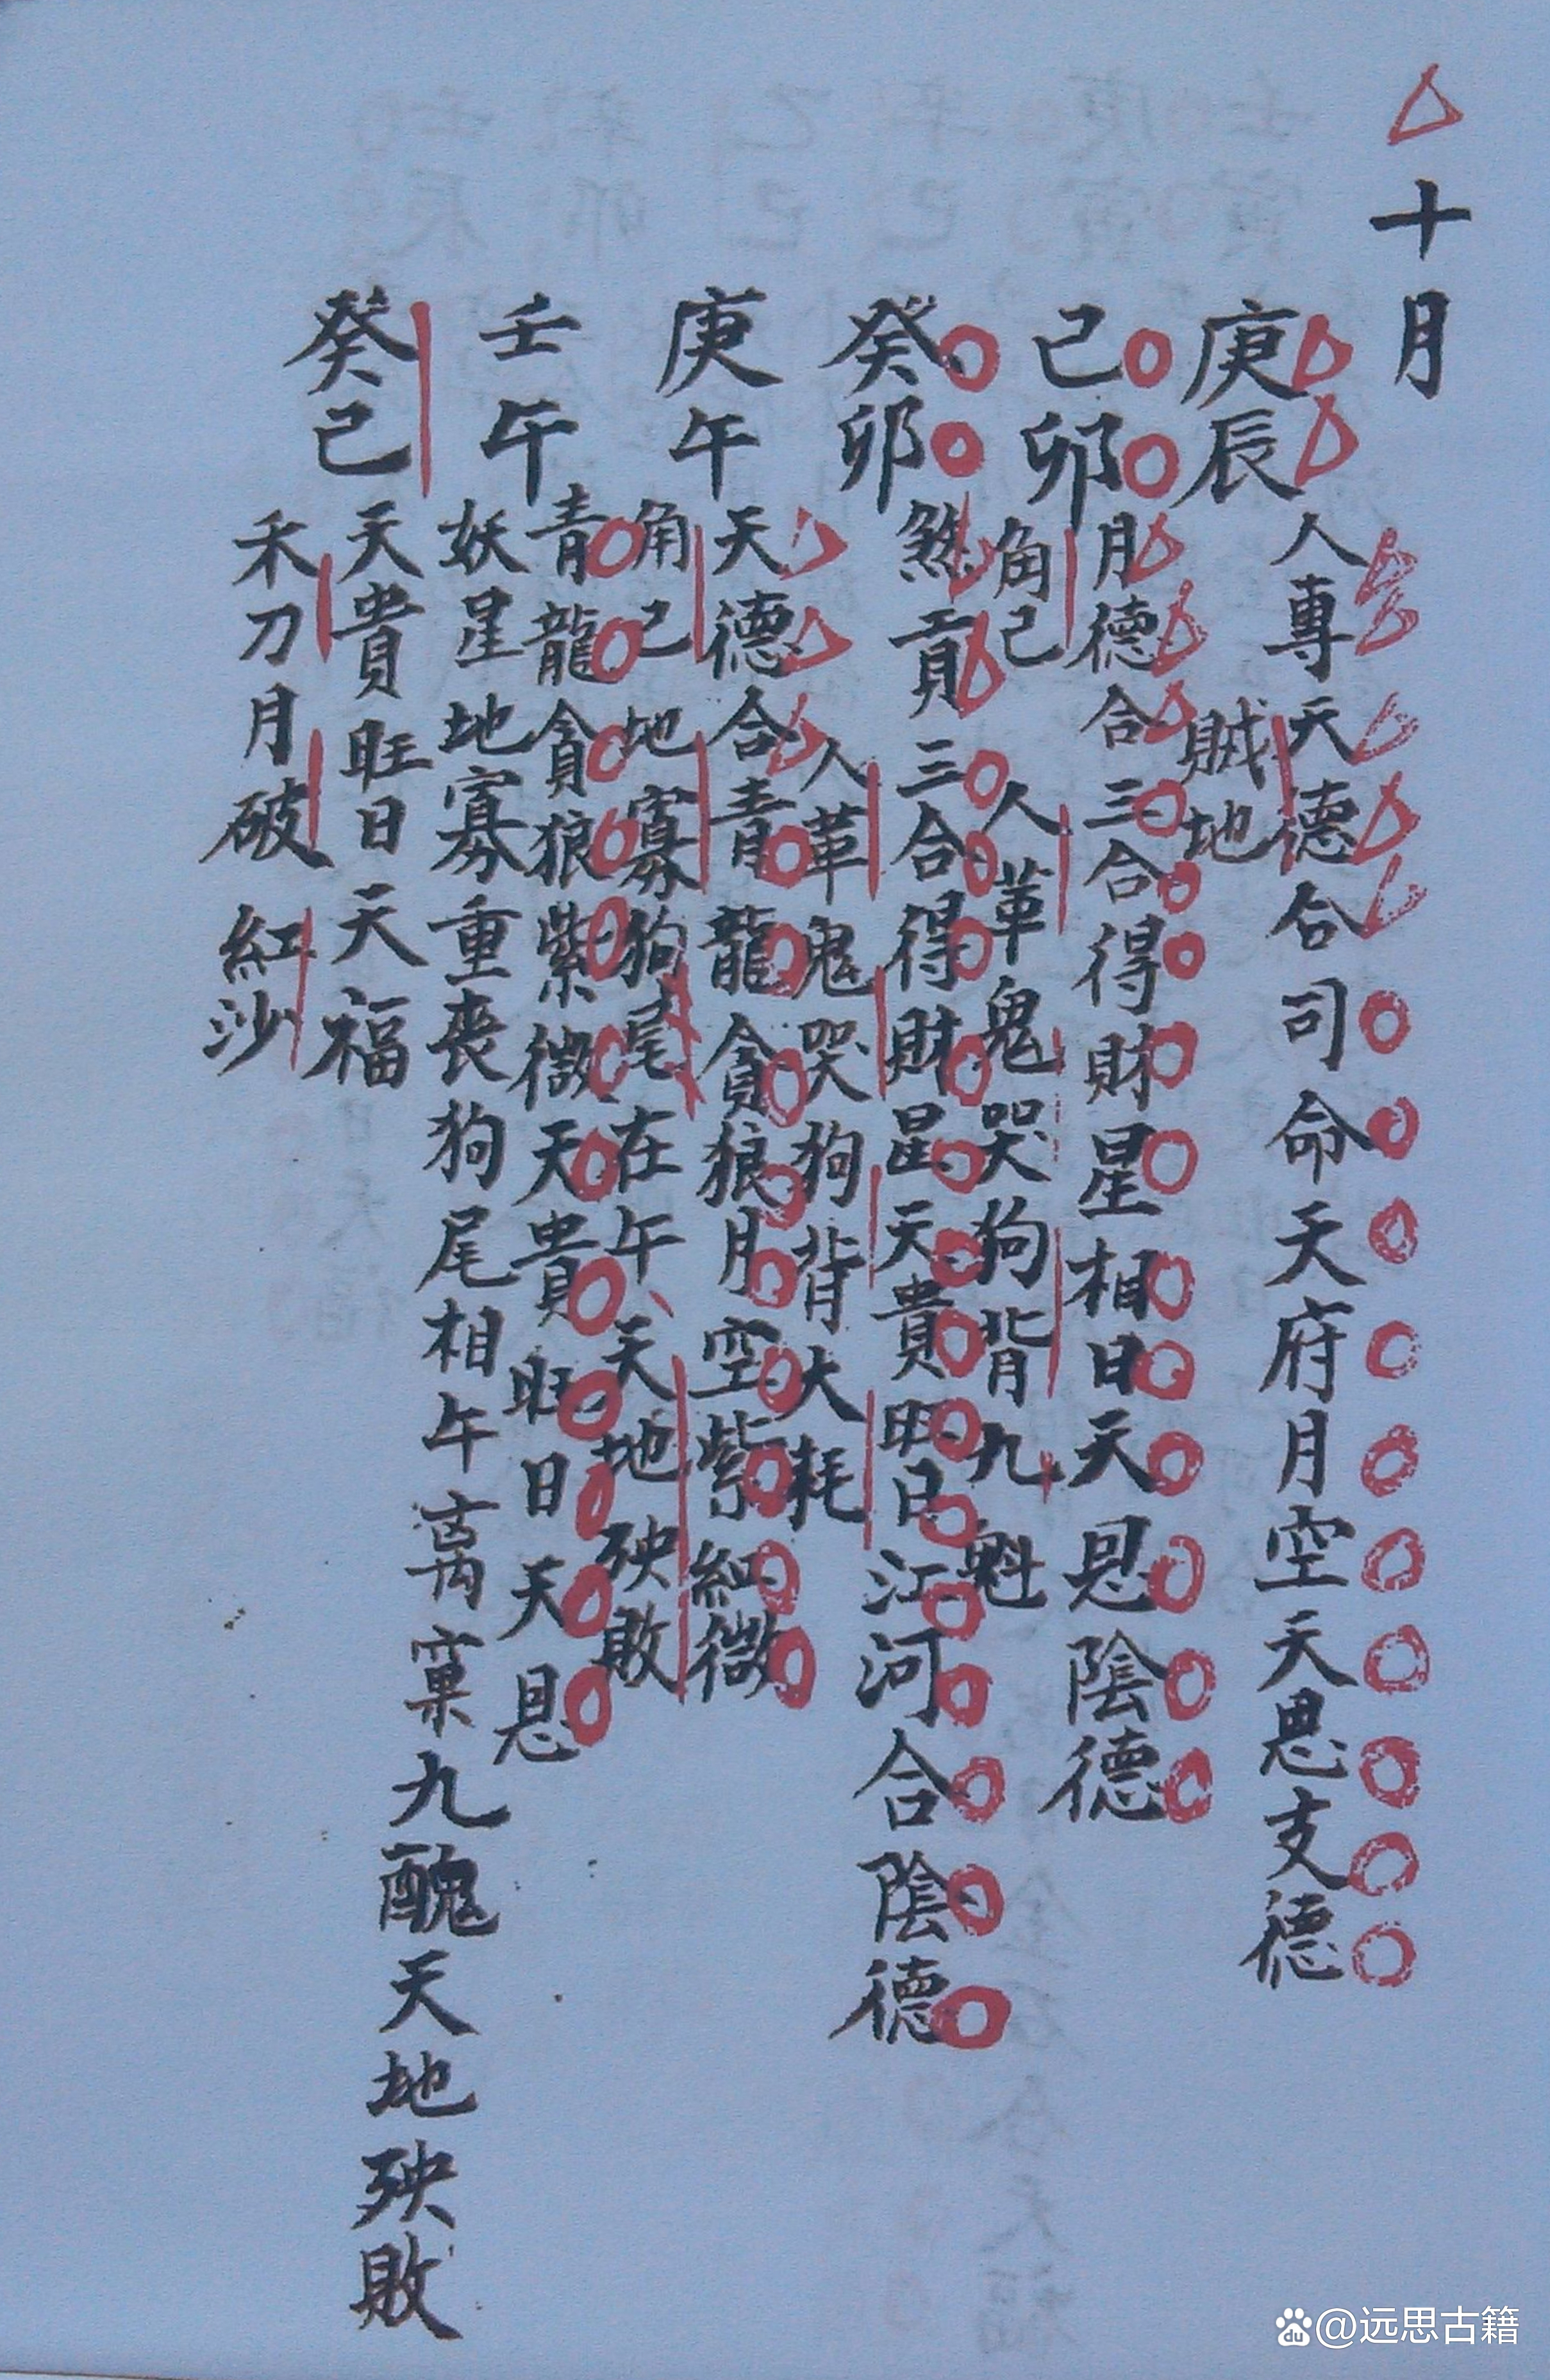 十月
庚辰
人專天德合司命天府月空天恩支德
賊地
己卯
月德合三合得財星相日天恩陰德
角己人革鬼哭狗背九魁
癸卯
煞貢三合得財星天貴旺日江河合陰德
人革鬼哭狗背大耗
庚午
天德合青龍貪狼月空紫紅微
角己地寡狗尾在午、天地殃敗
壬午
青龍貪狼紫微天貴旺日天恩
妖星地寡重喪狗尾相午 窠九醜天地殃敗
癸己
天貴旺日天福
禾刀月破紅沙
@远思古籍